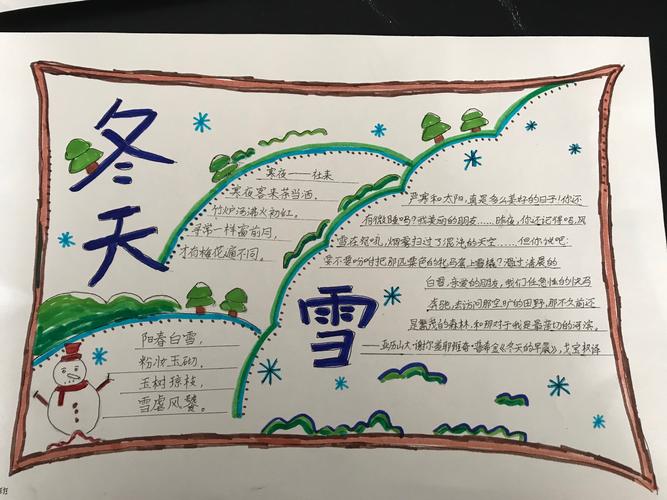 冬天
雪
寒夜——杜耒
寒夜客来茶当酒，
竹炉汤沸火初红。
寻常一样窗前月，
才有梅花便不同。
阳春白雪，
粉妆玉砌，
玉树琼枝，
雪虐风饕。
严寒和太阳，真是多么美好的日子！你还
有微睡吗？我美丽的朋友……昨夜，你还记得吗，风
雪在怒吼，烟雾扫过了混沌的天空……但你快吧：
要不要吩咐把那匹栗色的牝马套上雪橇？滑过清晨的
白雪，亲爱的朋友，我们任急性的快马
奔驰，去访问那空旷的田野，那不久前还
是繁茂的森林，和那对于我是最亲切的河滨。
——亚历山大·谢尔盖耶维奇·普希金《冬天的早晨》，戈宝权译